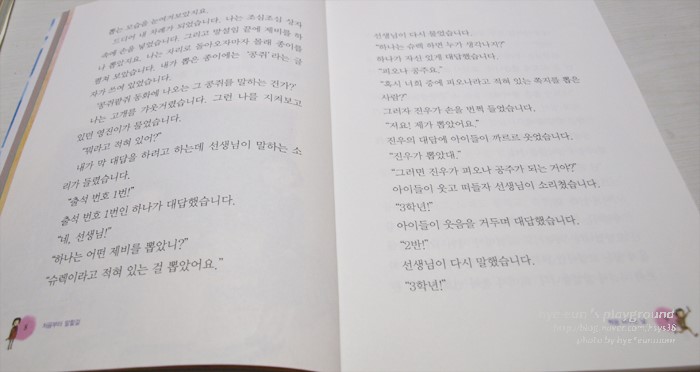 뽑는 모습을 눈여겨보았지요.
드디어 내 차례가 되었습니다. 나는 조심조심 상자
속에 손을 넣었습니다. 그리고 망설임 끝에 제비를 하
나 뽑았지요. 나는 자리로 돌아오자마자 몰래 종이를
펼쳐 보았습니다. 내가 뽑은 종이에는 '콩쥐'라는 글
자가 쓰여 있었습니다.
'콩쥐팥쥐 동화에 나오는 그 콩쥐를 말하는 건가?'
나는 고개를 갸웃거렸습니다. 그런 나를 지켜보고
있던 영진이가 물었습니다.
"뭐라고 적혀 있어?"
내가 막 대답을 하려고 하는데 선생님이 말하는 소
리가 들렸습니다.
"출석 번호 1번!"
출석 번호 1번인 하나가 대답했습니다.
"네, 선생님!"
"하나는 어떤 제비를 뽑았니?"
"슈렉이라고 적혀 있는 걸 뽑았어요."
8
선생님이 다시 물었습니다.
"하나는 슈렉 하면 누가 생각나지?"
하나가 자신 있게 대답했습니다.
"피오나 공주요."
"혹시 너희 중에 피오나라고 적혀 있는 쪽지를 뽑은
사람?"
그러자 진우가 손을 번쩍 들었습니다.
"저요! 제가 뽑았어요."
진우의 대답에 아이들이 까르르 웃었습니다.
"진우가 뽑았대."
"그러면 진우가 피오나 공주가 되는 거야?"
아이들이 웃고 떠들자 선생님이 소리쳤습니다.
"3학년!"
아이들이 웃음을 거두며 대답했습니다.
"2반!"
선생님이 다시 말했습니다.
"3학년!"
's playground
photo by